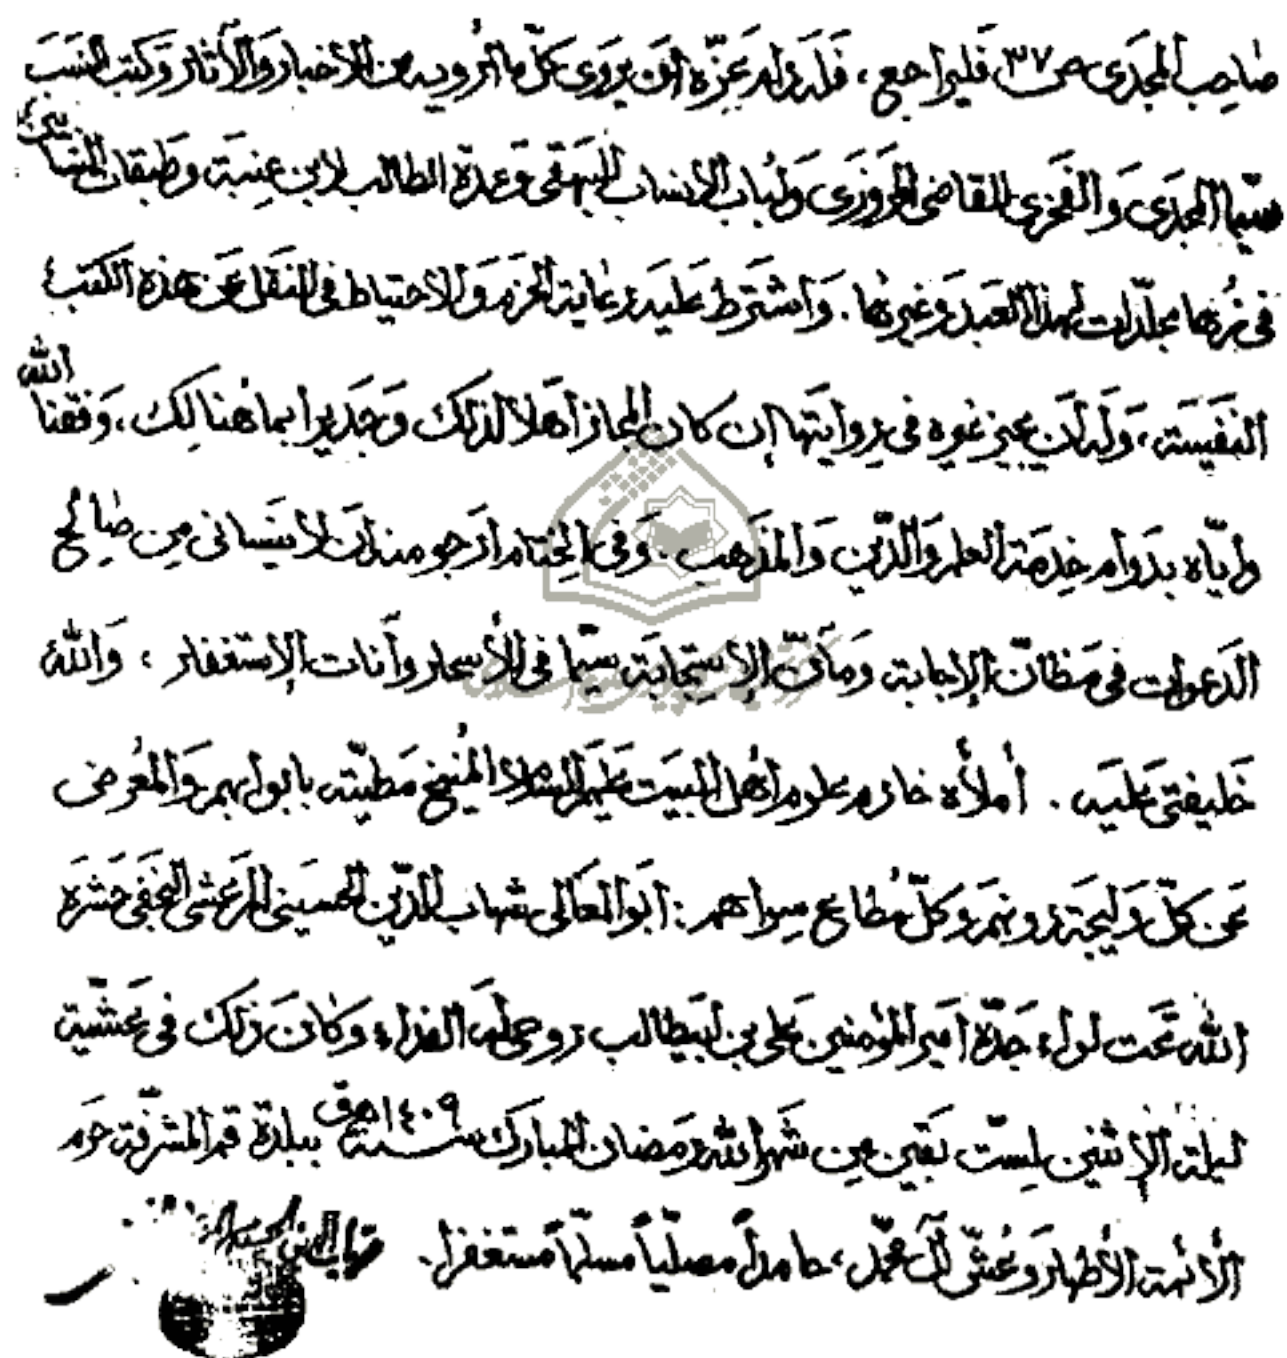 صاحب المجدى ص ٣٧ فليراجع، فله دام عزّه أن يروى كلّ ما أرويه من الأخبار والآثار وكتب النسب
سيّما المجدى والفخرى للقاضى المروزى ولباب الأنساب للبيهقى وعمدة الطالب لابن عنبة وطبقات النسّابين
فى نُزُهَا مجلّدات لهذا العبد وغيرها. واشترط عليه رعاية الحزم والاحتياط فى النقل عن هذه الكتب
النفيسة، وله أن يجيز غيره فى روايتها إن كان المجاز أهلا لذلك وجديرا بما هنالك، وفقنا الله
وإيّاه بدوام خدمة العلم والدّين والمذهب. وفى الختام أرجو منه أن لا ينسانى من صالح
الدعوات فى مظانّ الإجابة ومآنّ الإستجابة سيّما فى الأسحار وآنات الإستغفار، والله
خليفتى عليه. أملأه خادم علوم أهل البيت عليهم السلام المنيخ مطيّته بابوابهم والمعرض
عن كلّ وليجة دونهم وكلّ مطاع سواهم: ابو المعالى شهاب الدّين الحسينى المرعشى النجفى حشره
الله تحت لواء جدّه امير المؤمنين على بن ابيطالب روحى له الفداء وكان ذلك فى عشيّة
ليلة الإثنين لستّ بقين من شهر الله رمضان المبارك سنة ١٤٠٩ هق ببلدة قم المشرّفة حرم
الأئمة الأطهار وعُشّ آل محمّد، حامداً مصلّياً مسلّماً مستغفرا.
شهاب الدين الحسينى